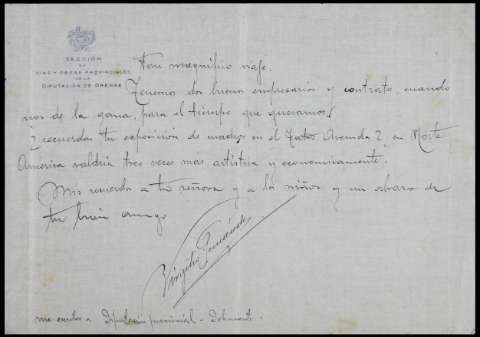 SECCIÓN
DE
VIAS Y OBRAS PROVINCIALES
DE LA
DIPUTACIÓN DE ORENSE
magnífico
Tenemos dos buenos empresarios y contrato, cuando
nos de la gana, para el tiempo que queramos.
¿recuerdas tu exposición de en el Teatro Avenida?, en Norte
America valdría tres veces mas artistica y economicamente.
Mis recuerdos a tu señora y a los niños y un abrazo de
tu buen amigo
Virgilio Fernández
me escribes a Diputación provincial -